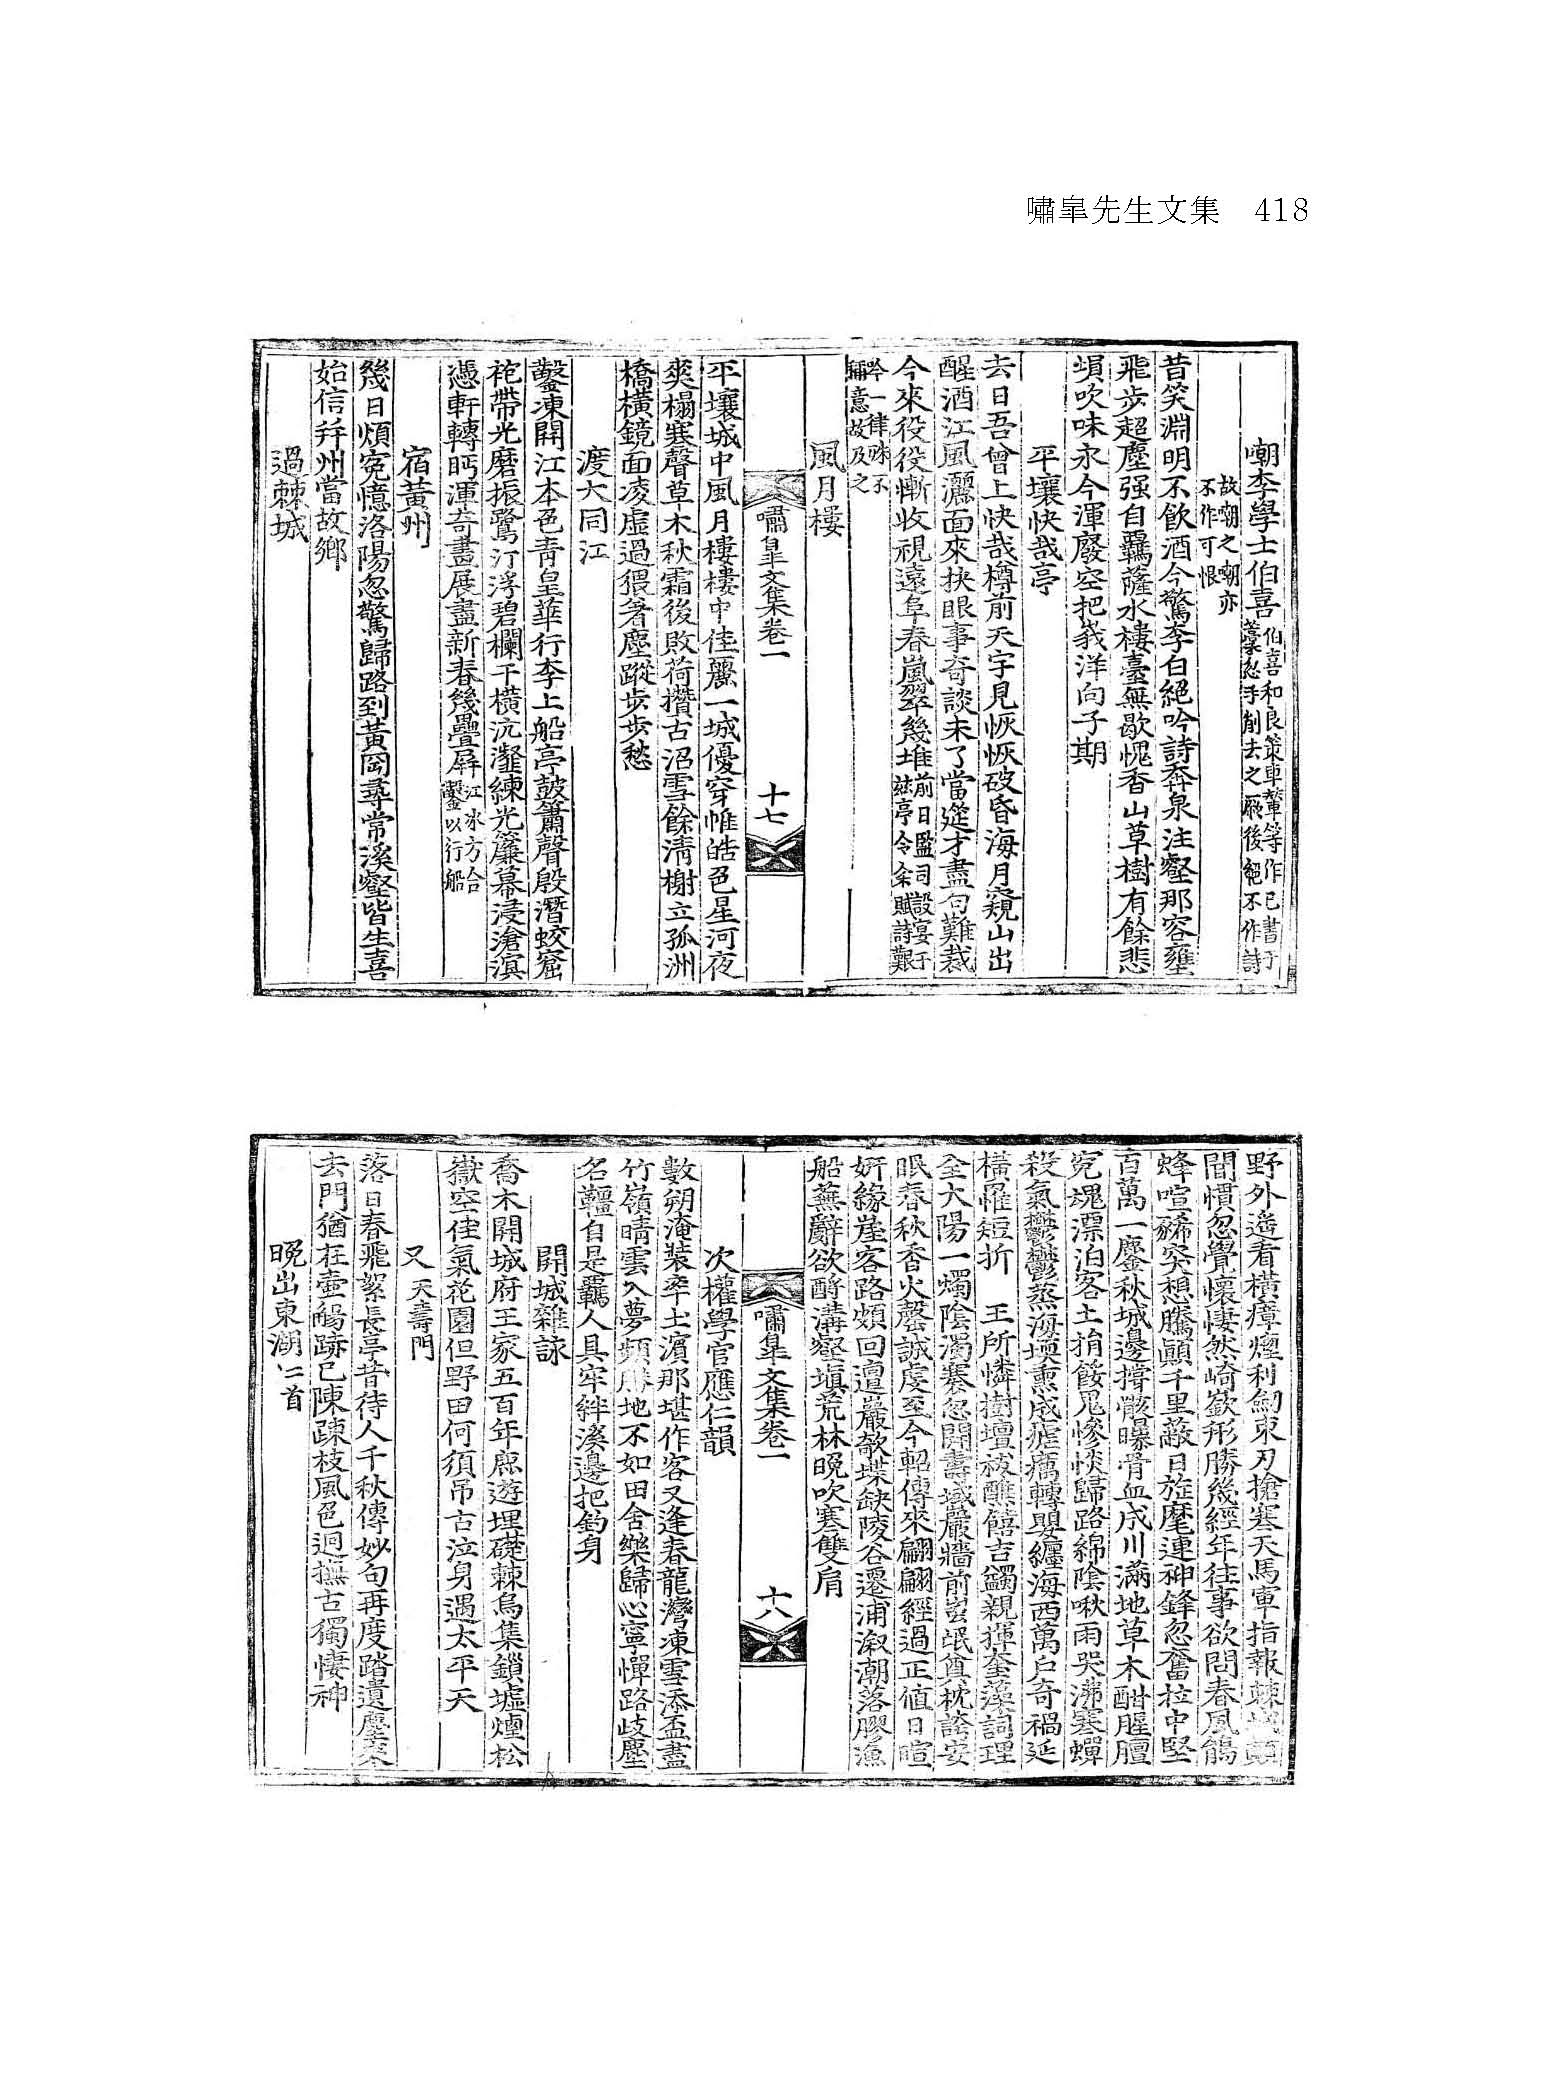 嘯皐先生文集 418
嘲李學士伯喜 伯喜和良策車輦等作已書于
藁忽手削去之厥後絕不作詩
故嘲之嘲亦
不作可恨
昔笑淵明不飮酒今驚李白絕吟詩奔泉注壑那容壅
飛步超塵强自羈薩水樓臺無歇愧香山草樹有餘悲
塤吹味永今渾廢空把峩洋向子期
平壤快哉亭
去日吾曾上快哉樽前天宇見恢恢破昏海月窺山出
醒酒江風灑面來挾眼事奇談未了當筵才盡句難裁
今來役役慚收視遠阜春嵐翠幾堆 前日監司設宴于
玆亭令余賦詩艱
吟一律殊不
稱意故及之
風月樓
嘯皐文集卷一 十七
平壤城中風月樓樓中佳麗一城優穿帷皓色星河夜
爽榻寒聲草木秋霜後敗荷攢古沼雪餘淸榭立孤洲
橋橫鏡面凌虛過猥著塵蹤步步愁
渡大同江
鑿凍開江本色靑皇華行李上船亭鼓簫聲殷潛蛟窟
袍帶光磨振鷺汀浮碧欄干橫沆瀣練光簾幕浸滄溟
憑軒轉眄渾奇畫展盡新春幾疊屛 江氷方合
鑿以行船
宿黃州
幾日煩冤憶洛陽忽驚歸路到黃岡尋常溪壑皆生喜
始信幷州當故鄕
過棘城
野外遙看橫瘴煙利劒東刃搶寒天馬軍指報棘城顚
聞慣忽覺懷悽然崎嶔形勝幾經年往事欲問春風鵑
烽喧豨突想騰顚千里蔽日旌麾連神鋒忽奮拉中堅
百萬一鏖秋城邊撐骸曝骨血成川滿地草木酣腥膻
冤魂漂泊客土捐餒鬼慘惔歸路綿陰啾雨哭沸寒蟬
殺氣鬱鬱蒸海堧熏成瘧癘轉嬰纏海西萬戶奇禍延
橫罹短折 王所憐樹壇祓醮饎吉蠲親揮奎藻詞理
全大陽一燭陰濁褰忽開壽域嚴牆前蚩氓奠枕謐安
眠春秋香火罄誠虔至今軺傳來翩翩經過正値日暄
姸緣崖客路頗回邅巖欹堞缺陵谷遷浦漵潮落膠漁
船蕪辭欲酹溝壑塡荒林晩吹寒雙肩
嘯皐文集卷一 十八
次權學官應仁韻
數朔淹裝率土濱那堪作客又逢春龍灣凍雪添盃盡
竹嶺晴雲入夢頻勝地不如田舍樂歸心寧憚路歧塵
名韁自是羈人具牢絆溪邊把釣身
開城雜詠
喬木開城府王家五百年庶遊埋礎棘鳥集鎖墟煙松
嶽空佳氣花園但野田何須吊古泣身遇太平天
又 天壽門
落日春飛絮長亭昔待人千秋傳妙句再度踏遺塵寀
去門猶在壺觴跡已陳疎枝風色迥撫古獨悽神
晩出東湖 二首